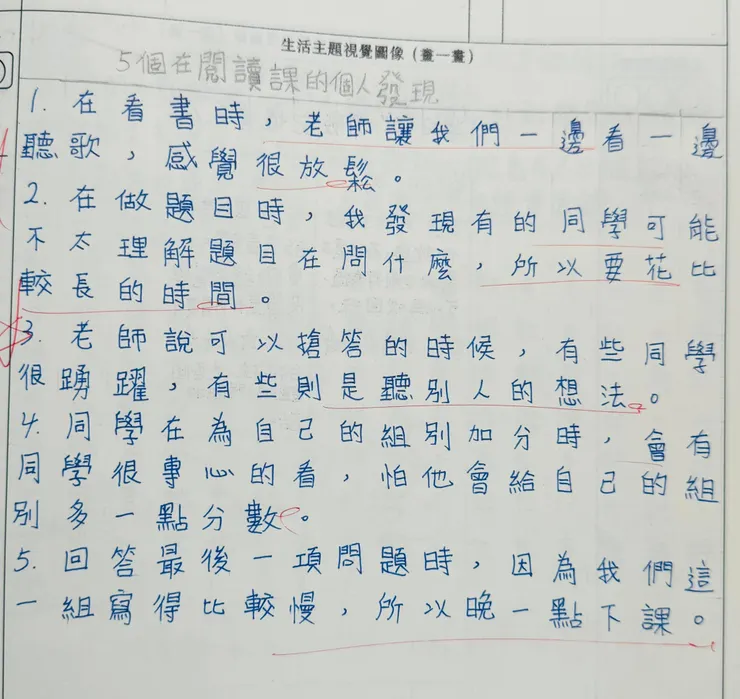 生活主題視覺圖像(畫一畫)
5個在閱讀課的個人發現
1. 在看書時,老師讓我們一邊看一邊
聽歌,感覺很放鬆。
2. 在做題目時,我發現有的同學可能
不太理解題目在問什麼,所以要花比
較長的時間。
3. 老師說可以搶答的時候,有些同學
很踴躍,有些則是聽別人的想法。
4. 同學在為自己的組別加分時,會有
同學很專心的看,怕他會給自己的組
別多一點分數。
5. 回答最後一項問題時,因為我們這
一組寫得比較慢,所以晚一點下課。